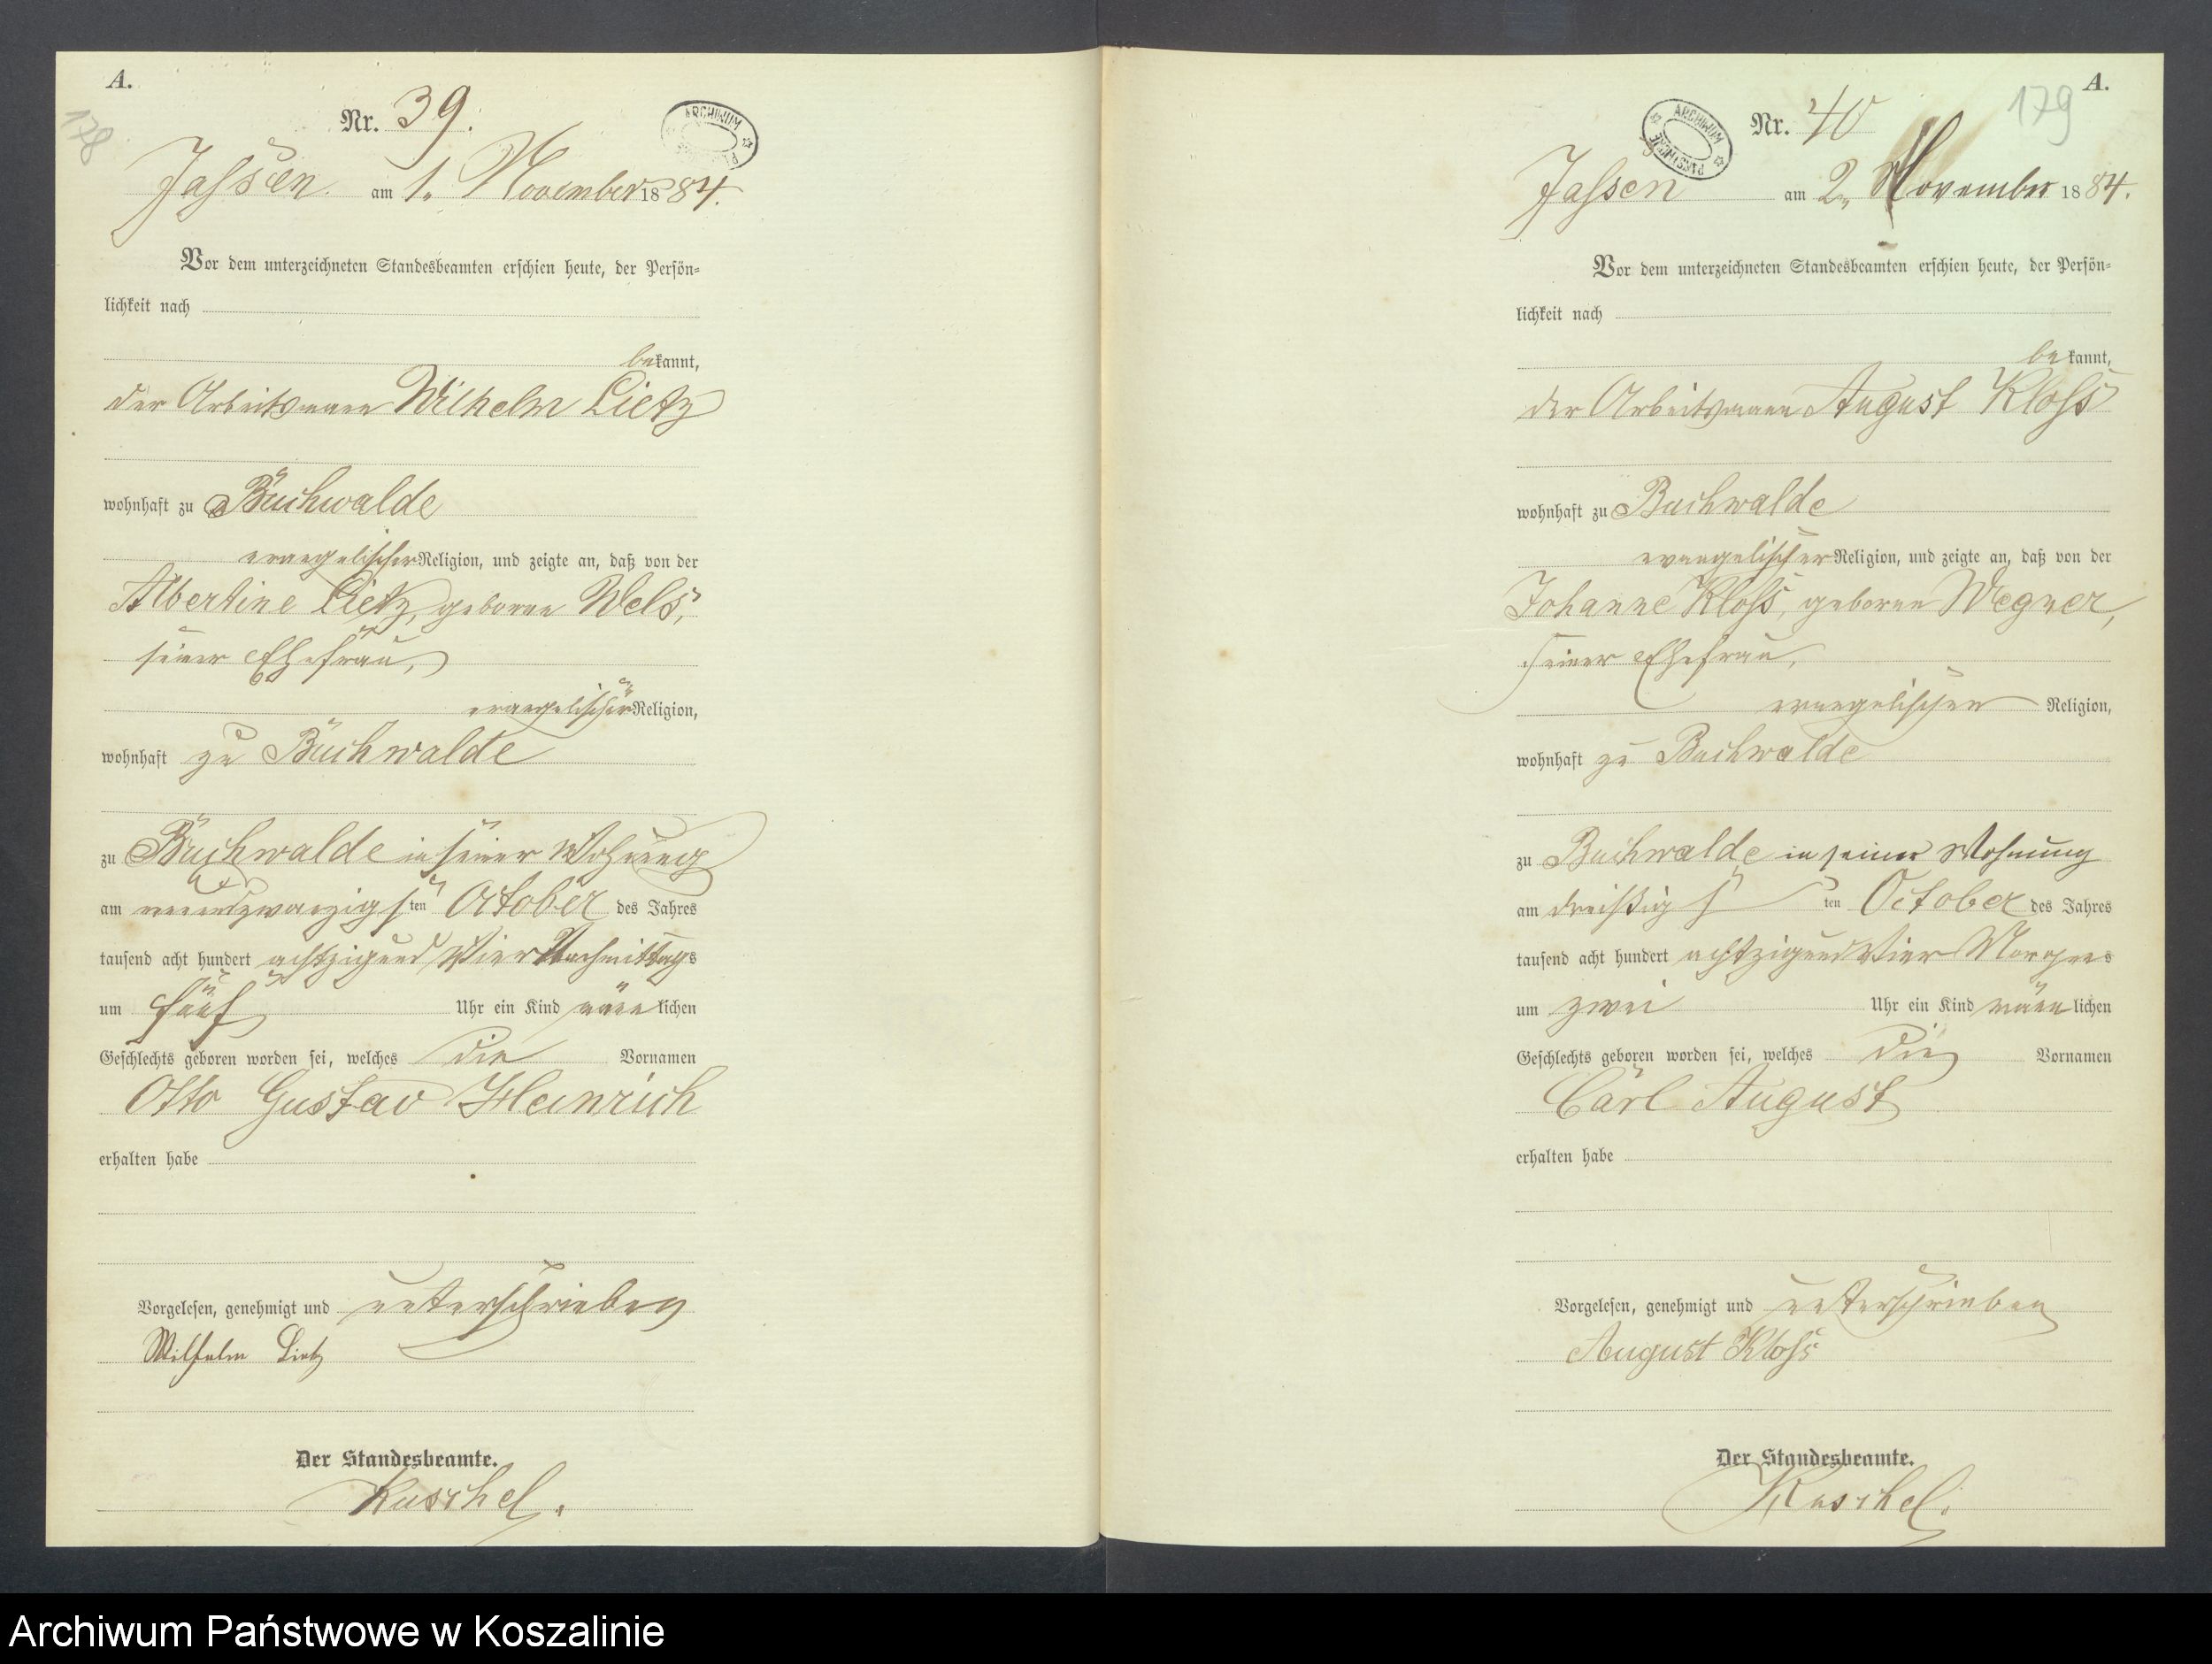 A.
178
Nr. 39.
ARCHIWUM
Jassen am 1. November 1884.
Vor dem unterzeichneten Standesbeamten erschien heute, der Persön=
lichkeit nach
bekannt,
der Arbeitsmann Wilhelm Lietz
wohnhaft zu Buchwalde
evangelischer Religion, und zeigte an, daß von der
Albertine Lietz, geborne Wels,
seiner Ehefrau,
evangelischer Religion,
wohnhaft zu Buchwalde
zu Buchwalde in seiner Wohnung
am neunundzwanzigsten October des Jahres
tausend acht hundert achtzigund Vier Nachmittags
um fünf Uhr ein Kind männlichen
Geschlechts geboren worden sei, welches die Vornamen
Otto Gustav Heinrich
erhalten habe
Vorgelesen, genehmigt und unterschrieben
Wilhelm Lietz
Der Standesbeamte.
Kuschel.
A.
179
Nr. 40
ARCHIWUM PAŃSTWOWE
Jassen am 2. November 1884.
Vor dem unterzeichneten Standesbeamten erschien heute, der Persön=
lichkeit nach
bekannt,
der Arbeitsmann August Kloss
wohnhaft zu Buchwalde
evangelischer Religion, und zeigte an, daß von der
Johanne Kloss, geborne Wegner,
seiner Ehefrau,
evangelischer Religion,
wohnhaft zu Buchwalde
zu Buchwalde in seiner Wohnung
am dreißigsten October des Jahres
tausend acht hundert achtzigund Vier Morgens
um zwei Uhr ein Kind männlichen
Geschlechts geboren worden sei, welches die Vornamen
Carl August
erhalten habe
Vorgelesen, genehmigt und unterschrieben
August Kloss
Der Standesbeamte.
Kuschel.
Archiwum Państwowe w Koszalinie